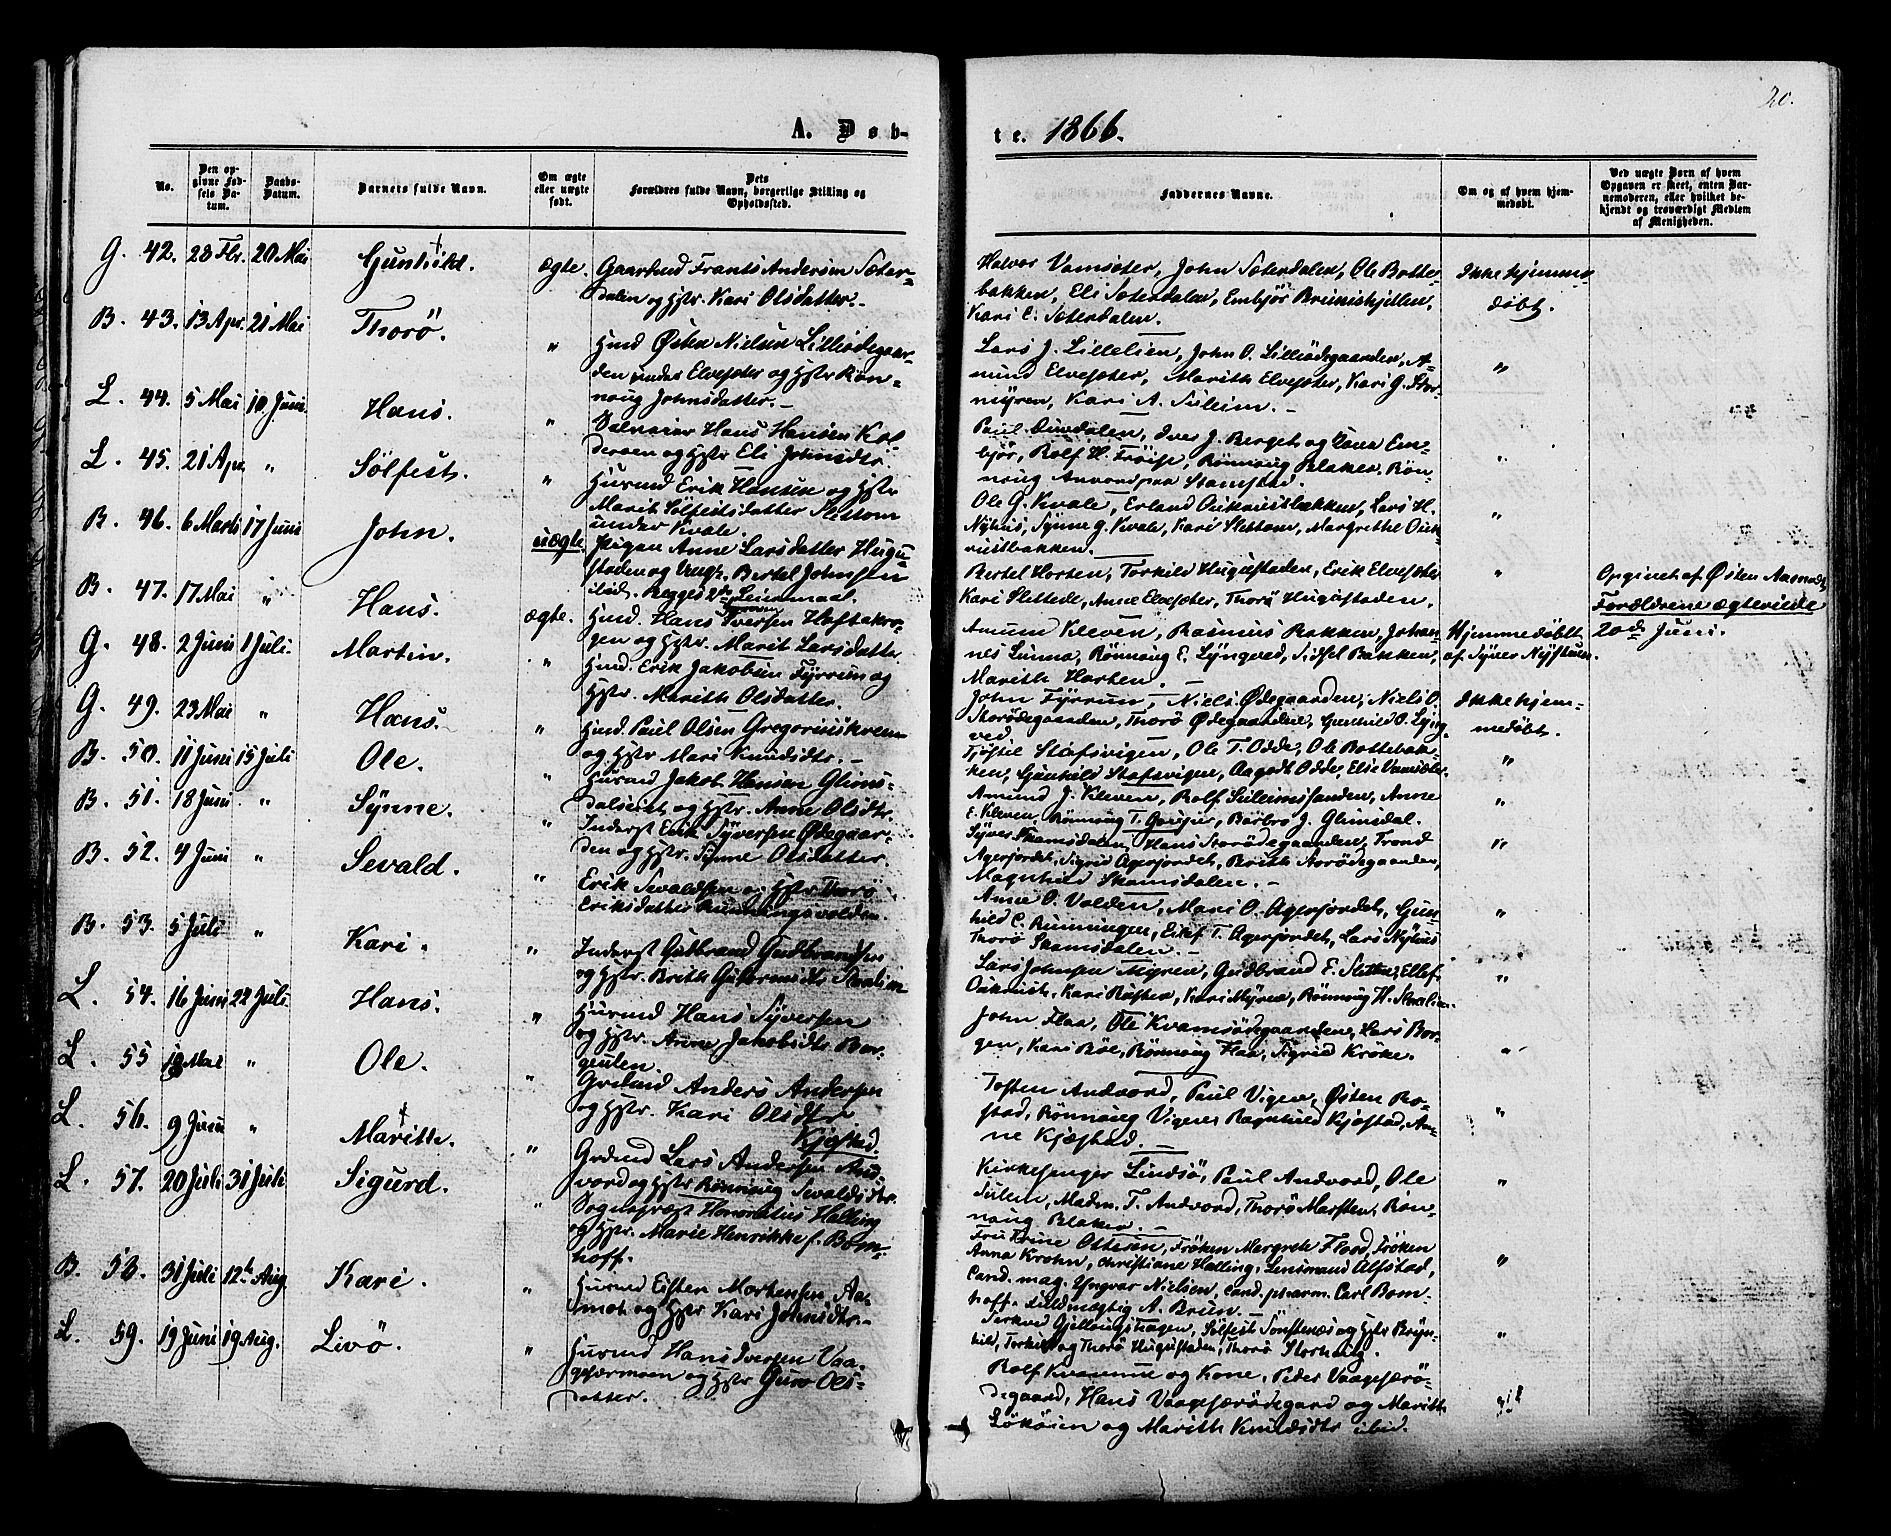 20.
A. Døb-
te. 1866.
No.
Den op-
givne Fød-
sels Da-
tum.
Daabs-
Datum.
Barnets fulde Navn.
Om ægte
eller uægte
født.
Dets
Forældres fulde Navn, borgerlige Stilling og
Opholdssted.
Faddernes Navne.
Om og af hvem hjem-
medøbt.
Ved uægte Børn af hvem
Opgaven er skeet, enten Bar-
nemoderen, eller hvilket be-
kjendt og troværdigt Medlem
af Menigheden.
G. 42. 28 Fbr. 20 Mai Gunhild. ægte. Gaardmd Frants Andersen Sæter-
dalen og Hstr. Kari Olsdatter.
Halvor Vamsæter, John Sæterdalen, Ole Botte-
bakken, Eli Sæterdalen, Embjør
Kari E. Sæterdalen.
Ikke hjemme
døbt.
B. 43. 13 Apr. 21 Mai Thorø. " Hmd Østen Nielsen Lilleødegaar-
den under Elvesæter og Hstr Røn-
naug Johnsdatter.
Lars J. Lillelien, John O. Lilleødegaarden, A-
mund Elvesæter, Marith Elvesæter, Kari G. Stor-
myren, Kari A. Suleim.
"
L. 44. 5 Mai 10 Juni. Hans. " Hans Hansen Kol-
og Hstr Eli Johnsdtr.
Paul J. Berget og Kona Em-
bjør, Rolf H. Frøise, Rønnaug Blaker, Røn-
naug Andvord paa Stamstad.
"
L. 45. 21 Apr. " Sølfest. " Husmd Erik Hansen og Hstr
Marit Sølfestsdatter Slettom
under Kvale.
Ole G. Kvale, Erland Aukrustbakken, Lars H.
Nyhus, Synne G. Kvale, Kari Slettom, Margrethe Auk-
rustbakken.
"
B. 46. 6 Marts 17 Juni John. uægte. Pigen Anne Larsdatter Hugu-
staden og Ungk. Bertel Johnsen
ibid. Begges 2det Leiermaal.
Bertel Horten, Torkild Hugustaden, Erik Elvesæter
Kari Slettede, Anne Elvesæter, Thorø Hugustaden.
"
Opgivet af Østen Aasmodt,
Forældrene ægteviede
20de Juni.
B. 47. 17 Mai " Hans. ægte. Hmd. Hans Iversen Hoftakro-
gen og Hstr. Marit Larsdatter.
Amund Kleven, Rasmus Bakken, Johan-
nes Lunna, Rønnaug E. Lyngved, Sidsel Bakken,
Marith Horten.
Hjemmedøbt
af Syver Nystuen.
G. 48. 2 Juni 1 Juli. Martin. " Hmd. Erik Jakobsen Fyrrun og
Hstr. Marith Olsdatter.
John Fyrrun, Niels Ødegaarden, Niels O.
Storødegaarden, Thorø Ødegaarden, Gunhild O. Lyng-
ved
Ikke hjem-
medøbt.
G. 49. 23 Mai " Hans. " Hmd. Paul Olsen Gregoriuskvern
og Hstr. Mari Knudsdtr.
Tjøstel Stafsvigen, Ole T. Odde, Ole Bottebak-
ken, Gunhild Stafsvigen, Aagodt Odde, Elise Vamsæter.
"
B. 50. 11 Juni 15 Juli Ole. " Husmd Jakob Hansen Glims-
dalseiet og Hstr. Anne Olsdtr.
Amund J. Kleven, Rolf Suleimssanden, Anne
E. Kleven, Rønnaug T. Barbro J. Glimsdal.
"
B. 51. 18 Juni " Synne. " Inderst Erik Syversen Ødegaar-
den og Hstr. Synne Olsdatter.
Syver Skamsdalen, Hans Storødegaarden, Trond
Agerjordet, Sigrid Agerjordet, Brith Storødegaarden,
Magnhild Skamsdalen.
"
B. 52. 4 Juni " Sevald. " Erik Sevaldsen og Hstr Thorø
Eriksdatter Runningsvolden.
Anne O. Volden, Mari O. Agerjordet, Gun-
hild C. Runningen, Eilef T. Agerjordet, Lars Nyhus
Thorø Skamsdalen.
"
B. 53. 5 Juli " Kari. " Inderst Gudbrand Gudbrandsen
og Hstr. Brith Guttormsdtr
Lars Johnsen Myren, Gudbrand E. Sletten, Ellef
Aukrust, Kari Rusten, Kari Myren, Rønnaug H.
"
L. 54. 16 Juni 22 Juli. Hans. " Husmd Hans Syversen
og Hstr. Anne Jakobsdtr Bor-
geulen.
John Flaa, Ole Kvamsødegaarden, Lars Bor-
gen, Kari Bøe, Rønnaug Flaa, Sigrid Krøke.
"
L. 55 18 Mai " Ole. " Grdmd Anders Andersen
og Hstr. Kari Olsdtr
Kjøstad.
Tosten Andvord, Paul Vigen, Østen Ro-
stad, Rønnaug Vigen, Ragnhild Kjøstad, An-
ne Kjøstad.
"
L. 56. 9 Juni " Marith. " Grdmd Lars Andersen And-
vord og Hstr Rønnaug Sevaldsdtr.
Kirkesanger Lindsø, Paul Andvord, Ole
Sulem, Madm. T. Andvord, Thorø Marsten, Røn-
naug Blaker.
"
L. 57. 20 Juli 31 Juli Sigurd. " Sognepræst Honoratus Halling
og Hstr. Marie Henrikke f. Bom-
hoff.
Fru Trine Ottesen, Frøken Margrete Flood, Frøken
Anna Krohn, Christiane Halling, Lensmand Alfstad,
Cand. mag. Yngvar Nielsen, Cand. pharm. Carl Bom-
hoff. Fuldmægtig A. Brun.
"
B. 58. 31 Juli 12te Aug. Kari. " Husmd Eisten Mortensen Aa-
mot og Hstr Kari Johnsdtr.
Torkild og Thorø Hugustaden, Thorø Storhaug.
"
L. 59. 19 Juni 19 Aug. Livø. " Husmd Hans Iversen Vaa-
og Hstr Guro Ols-
datter.
Rolf Kvamme og Kone, Peder
degaard, Hans og Marith
og Marith Knudsdtr ibid.
"